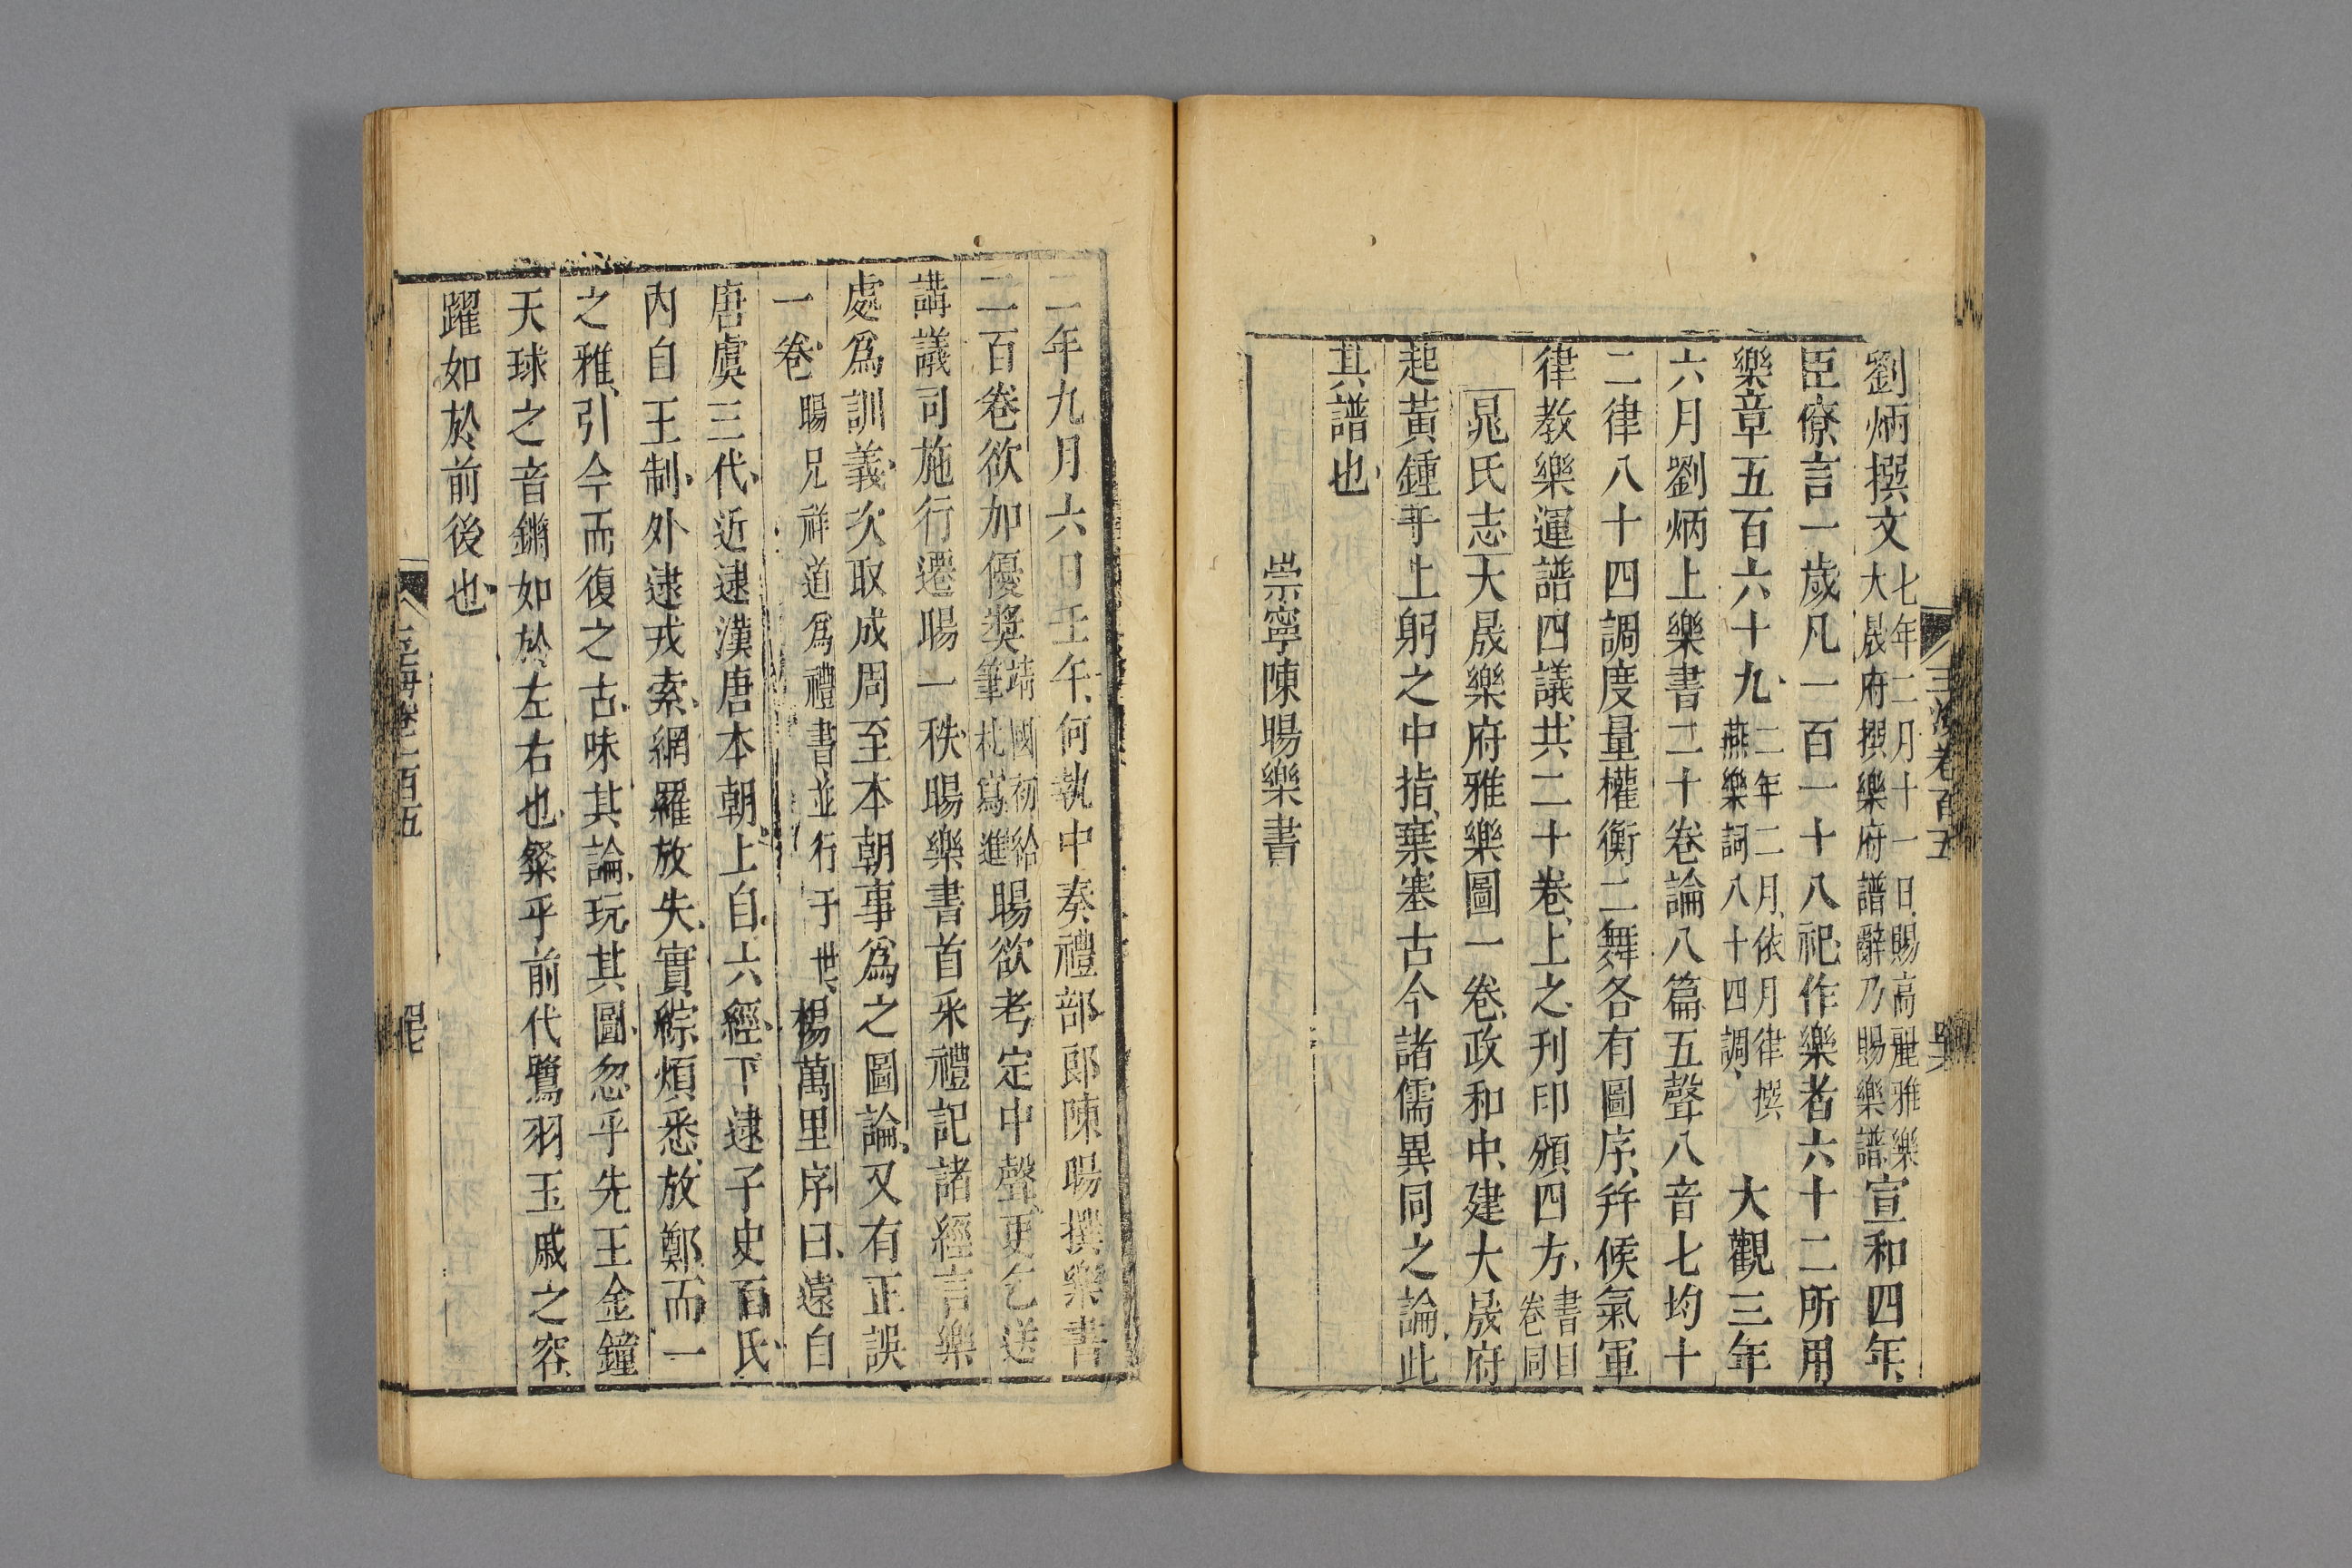 劉炳撰文七年二月十一日賜高麗雅樂大晟府撰樂府譜辭乃賜樂譜宣和四年
臣僚言一歲凡一百一十八祀作樂者六十二所用
樂章五百六十九二年二月依月律撰燕樂詞八十四調大觀三年
六月劉炳上樂書二十卷論八篇五聲八音七均十
二律八十四調度量權衡二舞各有圖序并候氣軍
律教樂運譜四議共二十卷上之刊印頒四方書目卷同
晁氏志大晟樂府雅樂圖一卷政和中建大晟府
起黃鍾于上躬之中指棄塞古今諸儒異同之論此
其譜也
崇寧陳暘樂書
二年九月六日壬午何執中奏禮部郎陳暘撰樂書
二百卷欲加優獎靖國初給筆札寫進暘欲考定中聲更乞送
講議司施行遷暘一秩暘樂書首采禮記諸經言樂
處爲訓義次取成周至本朝事爲之圖論又有正誤
一卷暘兄祥道爲禮書並行于世楊萬里序曰遠自
唐虞三代近逮漢唐本朝上自六經下逮子史百氏
內自王制外逮戎索網羅放失實綜煩悉放鄭而一
之雅引今而復之古味其論玩其圖忽乎先王金鐘
天球之音鏘如於左右也粲乎前代鷺羽玉戚之容
躍如於前後也
玉海卷一百五